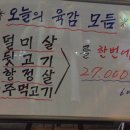 오늘의 육감 모듬
덜미살
뒷고기
항정살
주먹고기
를 한번에
27,000